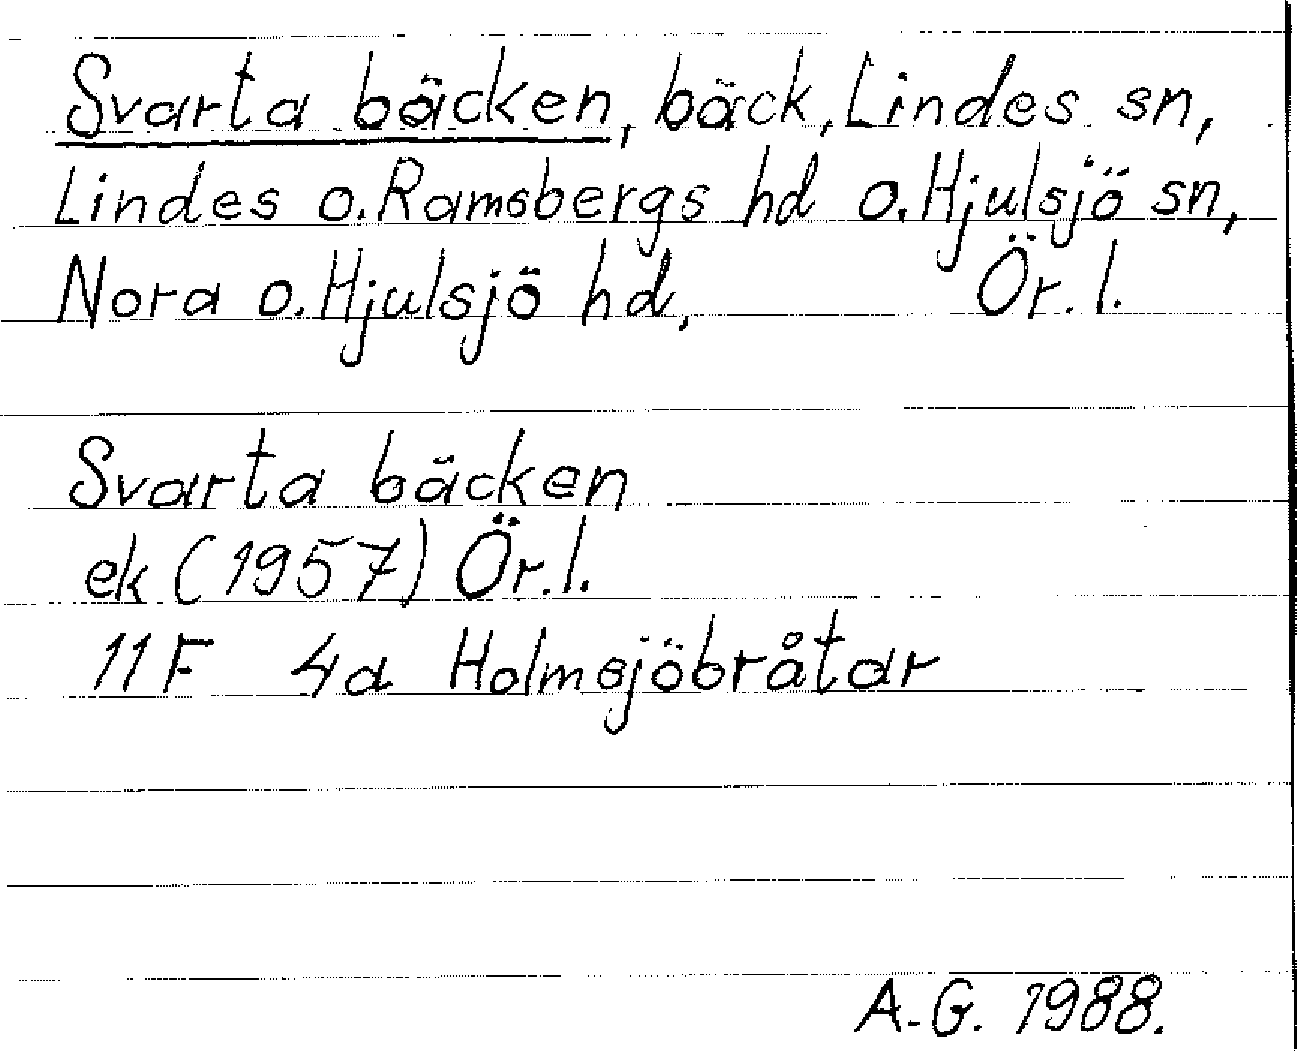 Svarta bäcken, bäck, Lindes sn,
Lindes o. Ramsbergs hd o. Hjulsjö sn,
Nora o. Hjulsjö hd, Ör. l.
Svarta bäcken
ek (1957) Ör. l.
11F 4a Holmsjöbråtar
A.G. 1988.